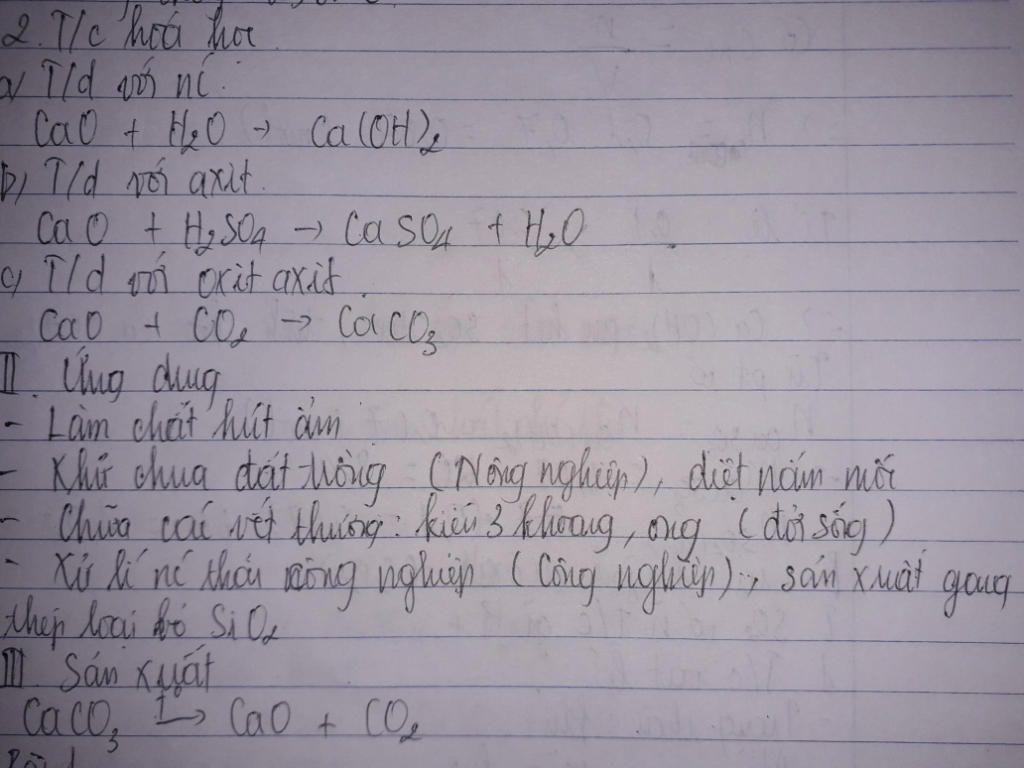 2. T/c hoá học
a) T/d với nc
CaO + H₂O → Ca(OH)₂
b) T/d với axit.
CaO + H₂SO₄ → CaSO₄ + H₂O
c) T/d với oxit axit.
CaO + CO₂ → CaCO₃
II. Ứng dụng
- Làm chất hút ẩm
- Khử chua đất trồng (Nông nghiệp), diệt nấm mốc
- Chữa các vết thương: kiến 3 khoang, ong (đời sống)
- Xử lí nc thải công nghiệp (Công nghiệp), sản xuất gang
thép loại bỏ SiO₂
III Sản xuất
CaCO₃ → CaO + CO₂